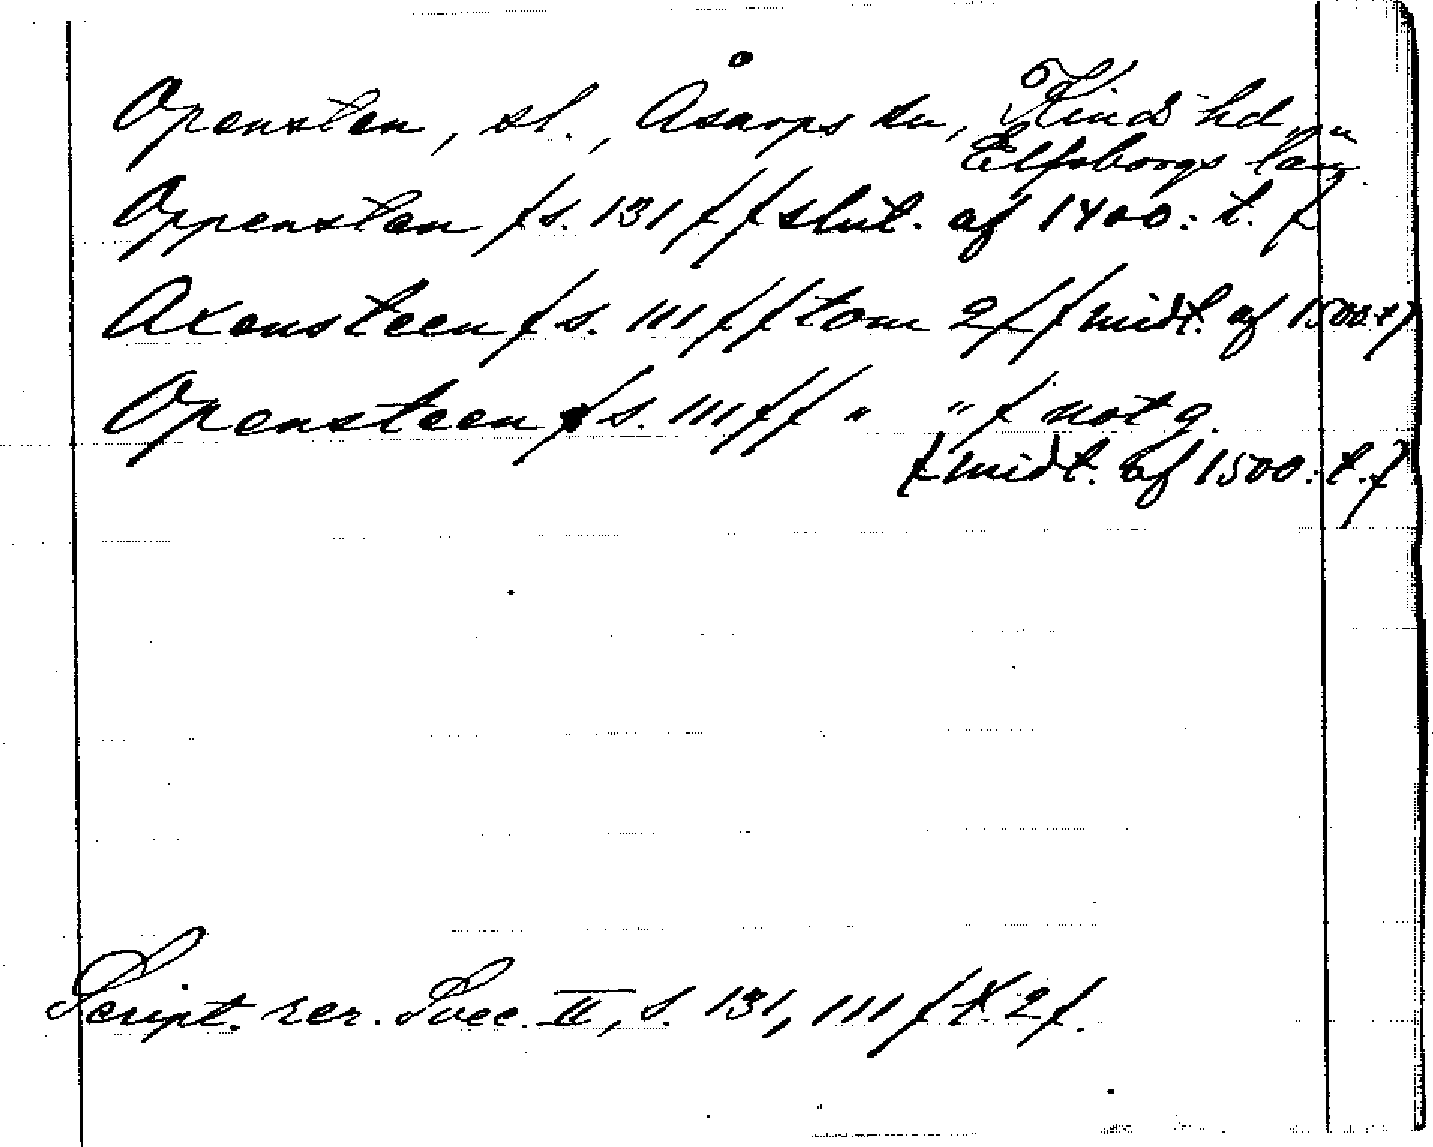 Opensten, sl., Åsarps sn, Kinds hd,
Elfsborgs län.
Oppensten (s. 131) (slut. af 1400: t.)
Axensteen (s. 111) (tom 2) (midt. af 1500: t.)
Opensteen (s. 111) ( " " ) not g.
(midt. af 1500: t.)
Script. rer. Svec. II, s. 131, 111 (t. 2).